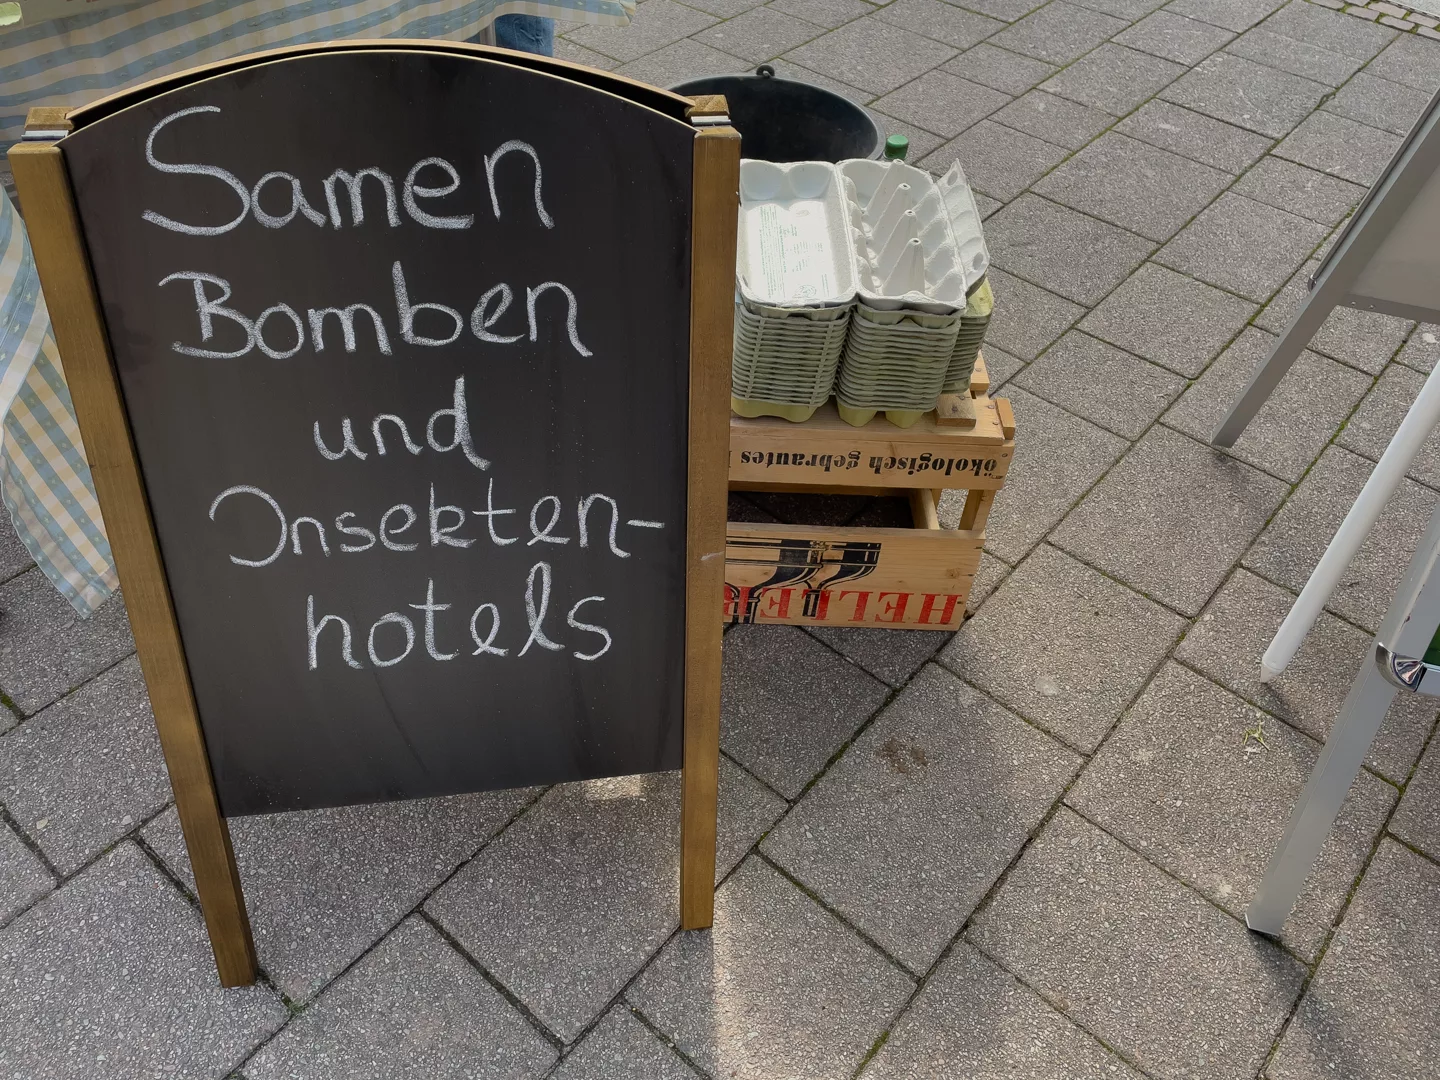 Samen
Bomben
und
Insekten-
hotels
ökologisch gebrautes
HELLER